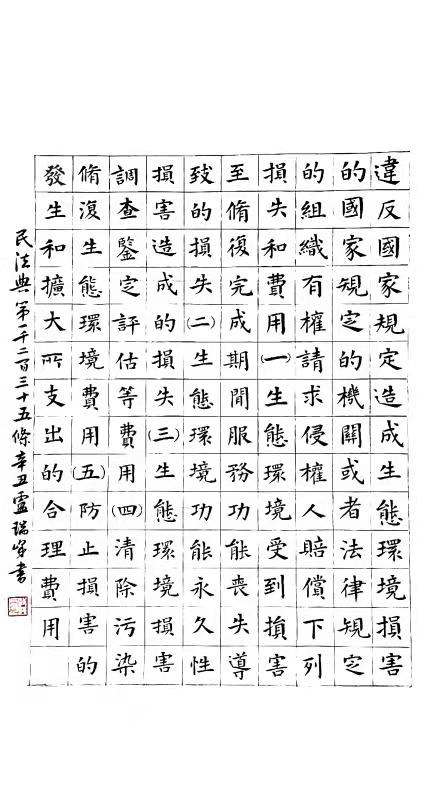 違反國家規定造成生態環境損害
的國家規定的機關或者法律規定
的組織有權請求侵權人賠償下列
損失和費用(一)生態環境受到損害
至脩復完成期間服務功能喪失導
致的損失(二)生態環境功能永久性
損害造成的損失(三)生態環境損害
調查鑒定評估等費用(四)清除污染
脩復生態環境費用(五)防止損害的
發生和擴大所支出的合理費用
民法典第一千二百三十五條辛丑盧瑞書